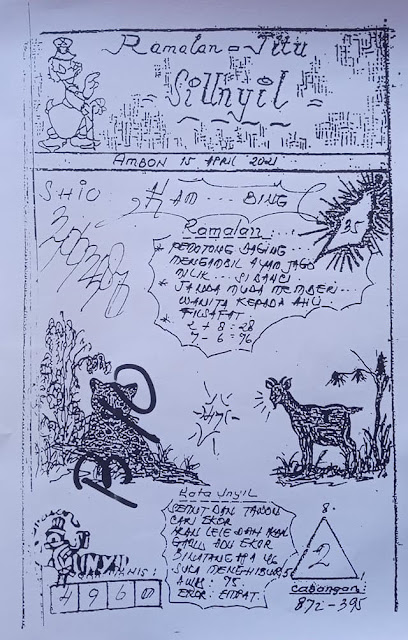 Ramalan = Jitu
Si Unyil
AMBON 15 APRIL 2021
SHIO
KAM ... BING
35
Ramalan:
* PEMOTONG DAGING ...
MENGAMBIL AYAM JAGO
MILIK ... SI BANCI
* JANDA MUDA MEMBERI ...
WANITA KEPADA AHLI
FILSAFAT.
2 + 8 : 28
7 - 6 : 76
Kata Unyil
SEMUT DAN TAWON
CARI EKOR
IKAN LELE DAN IKAN
ADU EKOR
BINATANG APA 46
SUKA MENGHIBUR
AWAS : 75
EKOR : EMPAT.
8.
2
UNYIL
MANIS :
4 9 6 0
Cabangan:
872 - 395